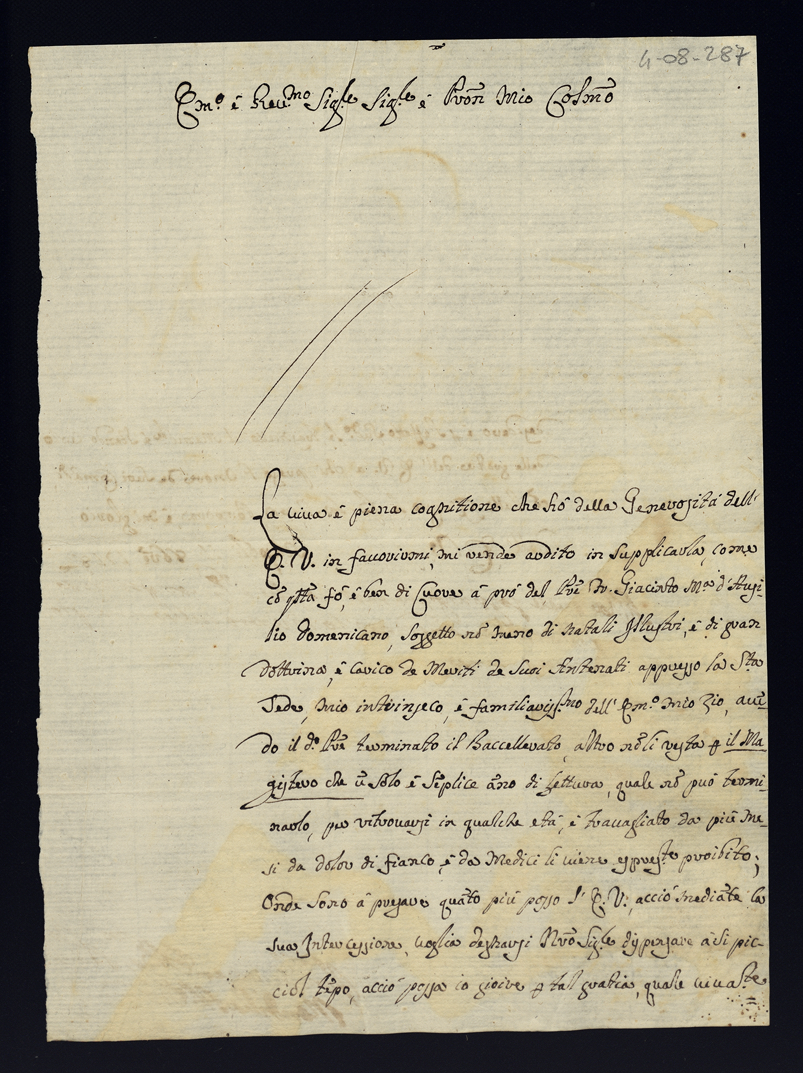 4-08-287
Em.º è Reu.mo Sig.re Sig.re è Pron Mio Colmo
La viua è piena cognitione che hò della Generosità dell'
E. V. in fauorirmi, mi rende ardito in supplicarla, come
cõ qta fò, è ben di Cuore à prò del Pre Fr. Giacinto Mª d'Aqui-
lio domenicano, soggetto nõ meno di natali Jllustri, è di gran
dottrina, è carico de Meriti de Suoi Antenati appresso la Sta
Sede, mio intrinseco, è familiariss.mo dell' Em.º mio Zio, auẽ-
do il d.º Pre terminato il Baccellerato, altro nõ li resta p il Ma-
gistero che ũ solo è sẽplice ãno di Lettura, quale nõ può termi-
narlo, per ritrouarsi in qualche età, è trauagliato da più me-
si da dolor di fianco, è da Medici li viene espreste proibito;
Onde sono à pregare quãto più posso l' E. V., acciò mediãte la
sua Intercessione, uoglia degnarsi Nrõ Sig.re dispensare à sì pic-
ciol tẽpo, acciò possa io gioire p tal gratia, quale viuaste